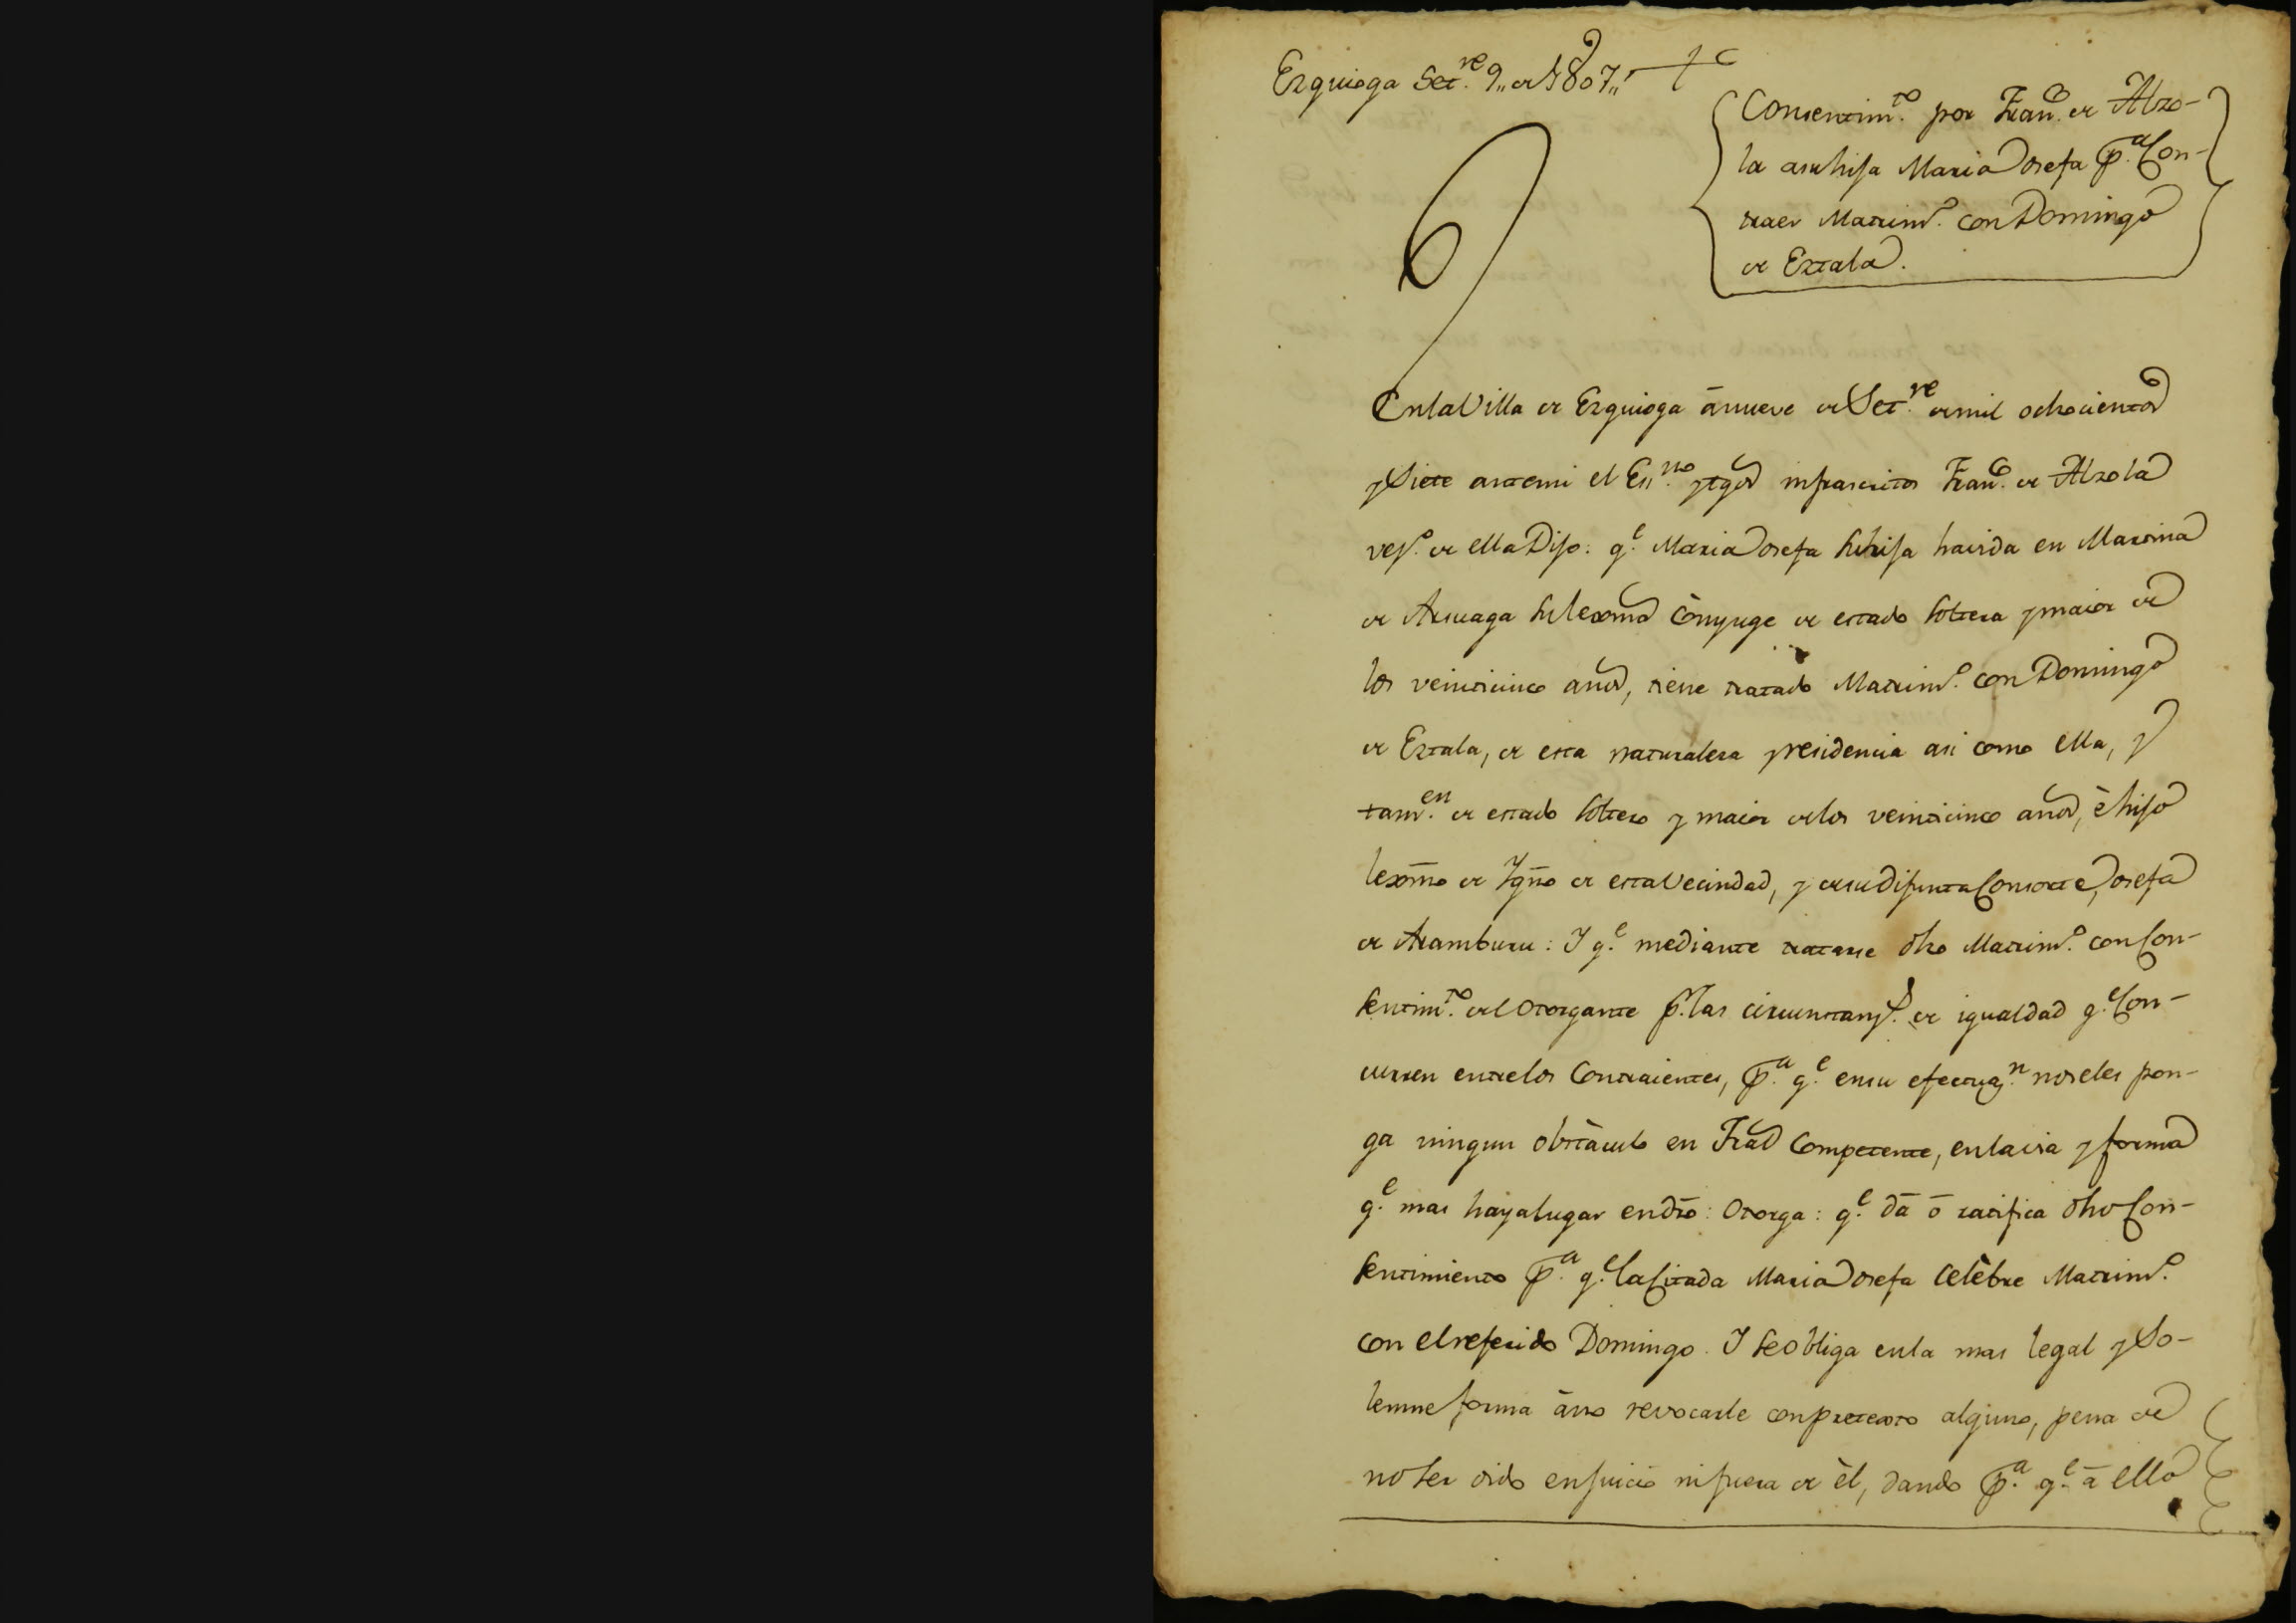 Ezquioga Set.re 9,, de 1807,,
Consentim.to por Fran.co de Alzo-
la asu hija Maria Josefa p.a Con-
traer Matrim.o con Domingo
de Eztala.
En la Villa de Ezquioga ā nueve de Set.re de mil ochocientos
y Siete antemi el Ess.no y tgos infrascritos Fran.co de Alzola
vez.o de ella Dijo: q.e Maria Josefa su hija havida en Maxima
de Arsuaga su lexma Cònyuge de estado soltera y maior de
los veinticinco años, tiene tratado Matrim.o con Domingo
de Eztala, de esta naturaleza y residencia asi como ella, y
tamv.en de estado soltero y maior de los veinticinco años, è hijo
lexmo de Ygno de esta Vecindad, y de su difunta Consorte, Josefa
de Aramburu: Y q.e mediante tratarse dho Matrim.o con Con-
sentim.to del Otorgante p.r las circunstanz.s de igualdad q.e Con-
curren entre los Contraientes, p.a q.e en su efectuaz.n no seles pon-
ga ningun obstàculo en Tral Competente, en la via y forma
q.e mas haya lugar en dro: Otorga: q.e dā ō ratifica dho Con-
sentimiento p.a q.e la Citada Maria Josefa Celèbre Matrim.o
con el referido Domingo. Y se obliga en la mas legal y So-
lemne forma ā no revocarle con pretexto alguno, pena de
no ser oido en juicio ni fuera de èl, dando p.a q.e ā ello